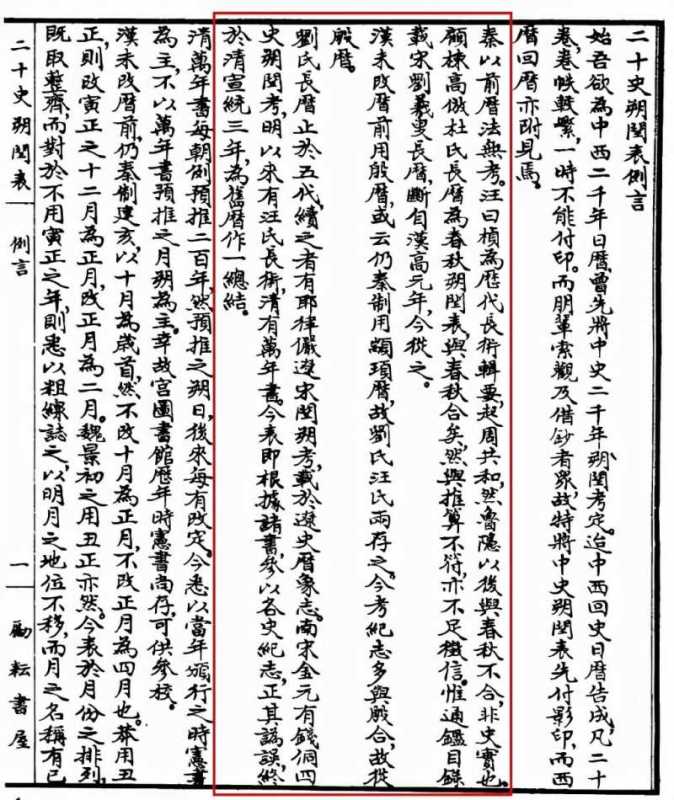 二十史朔閏表例言
始吾欲為中西二千年日曆，曾先將中史二千年朔閏考定。迨中西回史日曆告成，凡二十
卷，卷帙較繁，一時不能付印。而朋輩索觀及借鈔者眾，故特將中史朔閏表先付影印，而西
曆回曆亦附見焉。
秦以前曆法無考。汪曰楨為歷代長術輯要，起周共和，然魯隱以後與春秋不合，非史實也。
顧棟高倣杜氏長曆為春秋朔閏表，與春秋合矣，然與推算不符，亦不足徵信。惟通鑑目錄
載宋劉羲叟長曆，斷自漢高元年，今從之。
漢未改曆前用殷曆，或云仍秦制用顓頊曆，故劉氏汪氏兩存之。今考紀志多與殷合，故從
殷曆。
劉氏長曆止於五代，續之者有耶律儼遼宋閏朔考，載於遼史曆象志。南宋金元有錢侗四
史朔閏考，明以來有汪氏長術，清有萬年書。今表即根據諸書，參以各史紀志，正其譌誤，終
於清宣統三年，為舊曆作一總結。
清萬年書每朝例預推二百年，然預推之朔日，後來每有改定。今悉以當年頒行之時憲書
為主，不以萬年書預推之月朔為主。幸故宮圖書館歷年時憲書尚存，可供參校。
漢未改曆前，仍秦制建亥，以十月為歲首，然不改十月為正月，不改正月為四月也。莽用丑
正，則改寅正之十二月為正月，改正月為二月。魏景初之用丑正亦然。今表於月份之排列，
既取整齊，而對於不用寅正之年，則悉以粗線誌之，以明月之地位不移，而月之名稱有已
二十史朔閏表 例言 一 勵耘書屋